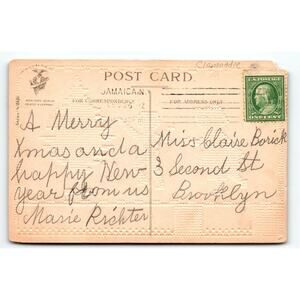 Clamondre
POST CARD
JAMAICA N
FOR CORRESPONDENCE
FOR ADDRESS ONLY
ONE CENT
A Merry
Xmas and a
happy New
year from us
Marie Richter
Miss Claire Borick
3 Second St
Brooklyn